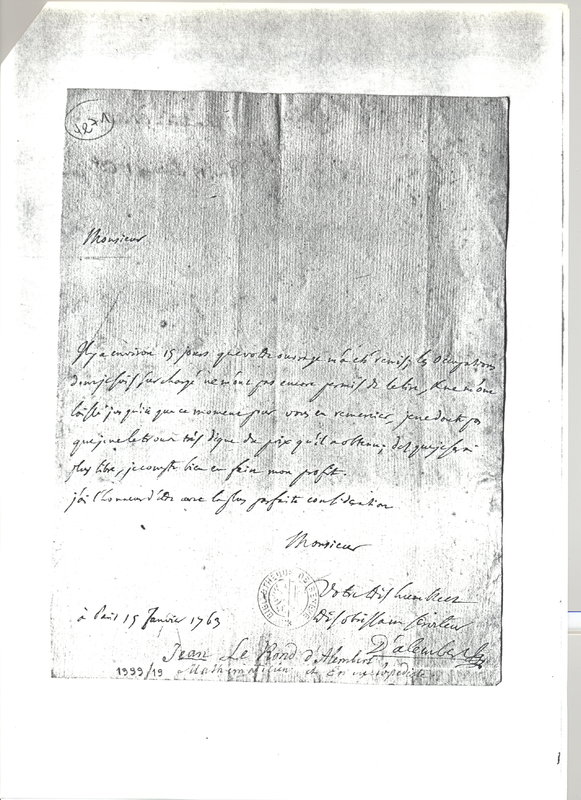 Monsieur
Il y a environ 15 jours que votre ouvrage m'a été remis; les occupations
dont je suis surchargé ne m'ont pas encore permis de le lire, & ne m'ont
laissé jusqu'à que ce moment pour vous en remercier, je ne doute pas
que je ne le trouve très digne du prix qu'il a obtenu; dès que je serai
plus libre, je compte bien en faire mon profit.
j'ai l'honneur d'être avec la plus parfaite considération
Monsieur
Votre très humble et
très obéissant serviteur
à Paris 15 Janvier 1763
D'alembert
Jean Le Rond d'Alembert
1999/19 Mathématicien et Encyclopédiste